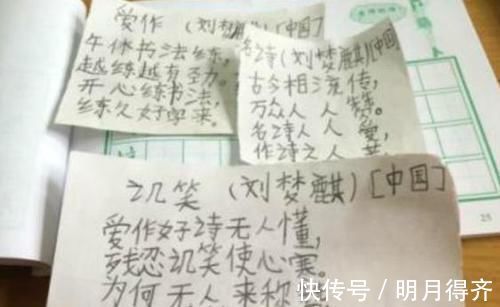 爱作 (刘梦麒)[中国]
午休书法练,
越练越有劲。
开心练书法,
练久好字来。
名诗(刘梦麒)[中国
古今相流传,
万众人人赞。
名诗人人爱,
作诗之人
讥笑 (刘梦麒)[中国]
爱作好诗无人懂,
残忍讥笑使心寒。
为何无人来称
25
快传号/明月得齐